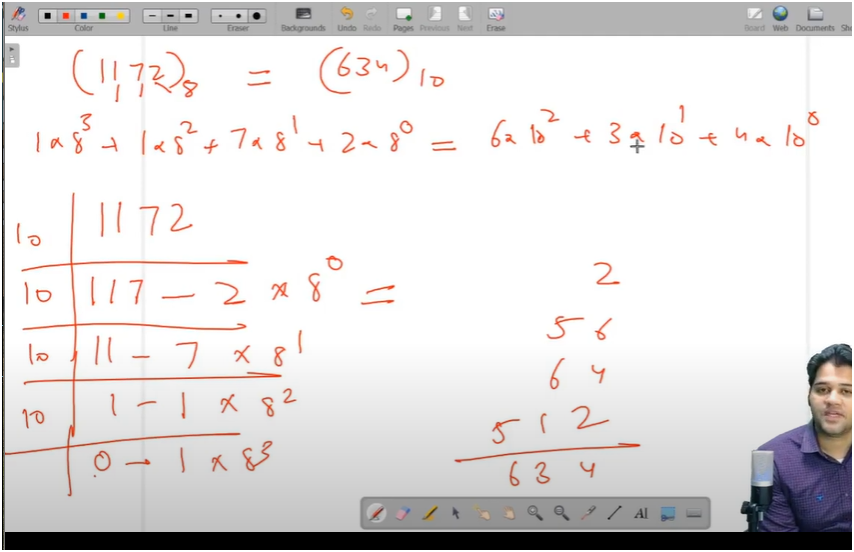 Stylus Color Line Eraser Backgrounds Undo Redo Pages Previous Next Erase Board Web Documents She
(1172)₈ = (634)₁₀
1×8³ + 1×8² + 7×8¹ + 2×8⁰ = 6×10² + 3×10¹ + 4×10⁰
10 | 1172
10 | 117 – 2 × 8⁰ = 2
10 | 11 – 7 × 8¹ 56
10 | 1 – 1 × 8² 64
0 – 1 × 8³ 512
634
AI